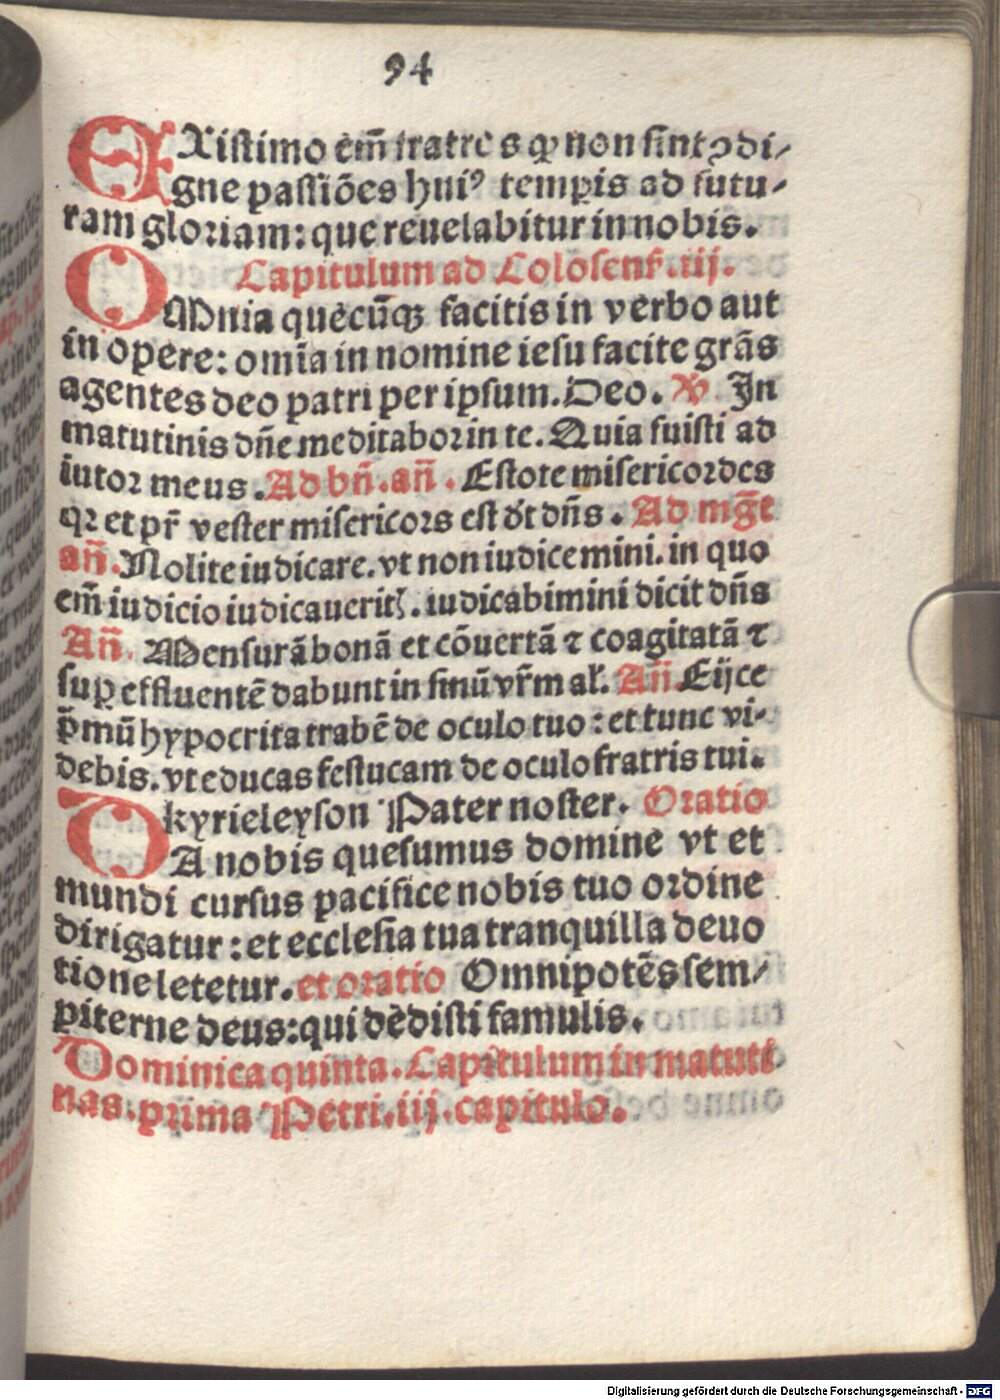 94
EXistimo em̄ fratres ꝙ non sint ꝯdi⸗
gne passiōes huiꝰ temꝑis ad futu⸗
ram gloriam: que reuelabitur in nobis.
Capitulum ad Colosenẜ. iij.
OMnia quecūqꝫ facitis in verbo aut
in opere: omīa in nomine iesu facite grās
agentes deo patri per ipsum. Deo. ℣ In
matutinis dn̄e meditabor in te. Quia fuisti ad
iutor meus. Ad bn̄. an̄. Estote misericordes
qꝛ et pr̄ vester misericors est dt dn̄s. Ad mg̅t
an̄. Nolite iudicare. vt non iudicemini. in quo
em̄ iudicio iudicaueritꝭ. iudicabimini dicit dn̄s
An̄. Mensurā bonā et cōuertā ⁊ coagitatā ⁊
suꝑeffluentē dabunt in sinū vr̄m aƚ. An̄. Eijce
p̄mū hypocrita trabē de oculo tuo: et tunc vi⸗
debis. vt educas festucam de oculo fratris tui.
kyrieleyson Pater noster. Oratio
DA nobis quesumus domine vt et
mundi cursus pacifice nobis tuo ordine
dirigatur: et ecclesia tua tranquilla deuo
tione letetur. et oratio Omnipotēs sem⸗
piterne deus: qui dedisti famulis.
Dominica quinta. Capitulum in matuti
nas. prima Petri. iij. capitulo.
Digitalisierung gefördert durch die Deutsche Forschungsgemeinschaft - DFG